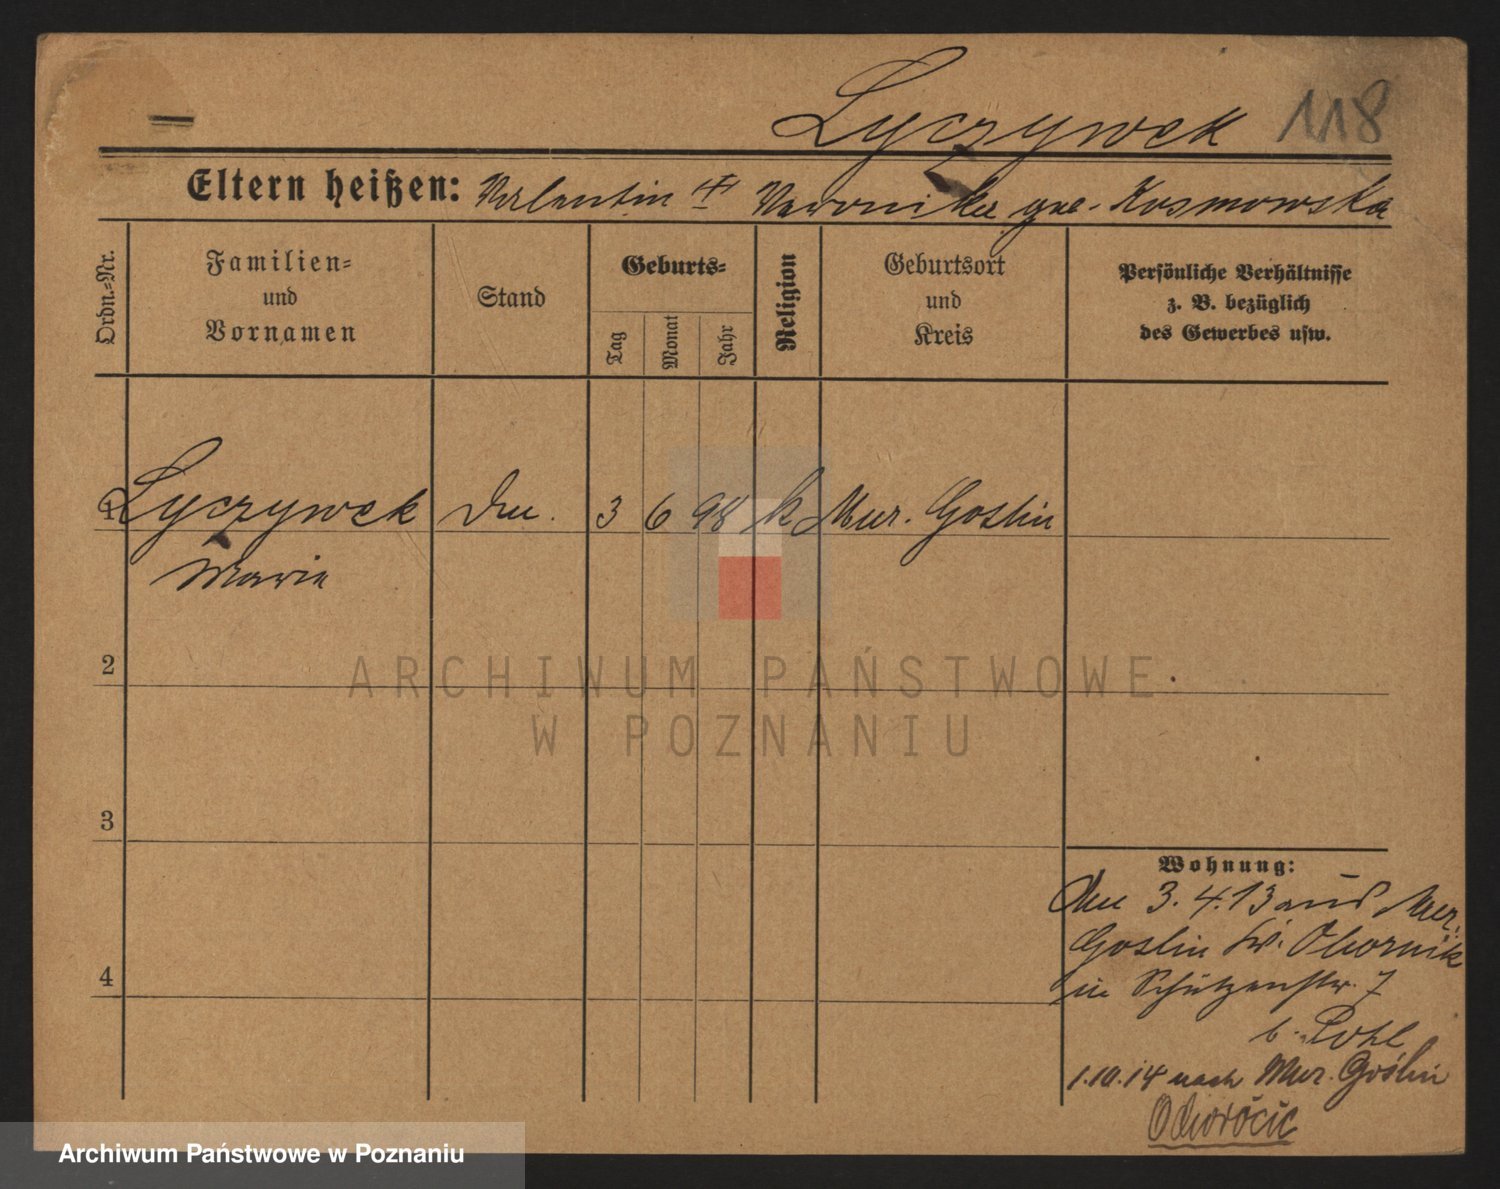 Lyczywek 118
Eltern heißen: Valentin Veronika geb. Kosmowska
Ordn.-Nr.
Familien-
und
Vornamen
Stand
Geburts-
Tag
Monat
Jahr
Religion
Geburtsort
und
Kreis
Persönliche Verhältnisse
z. B. bezüglich
des Gewerbes usw.
1 Lyczywek 3 6 98 k Mur. Goslin
Marie
2
ARCHIWUM PAŃSTWOWE
W POZNANIU
3
Wohnung:
3. 4. 13 aus Mur.
Goslin Kr. Obornik
4
in Schützenstr. 7
b. Pohl
1.10.14 nach Mur. Goślin
Odwrócić
Archiwum Państwowe w Poznaniu